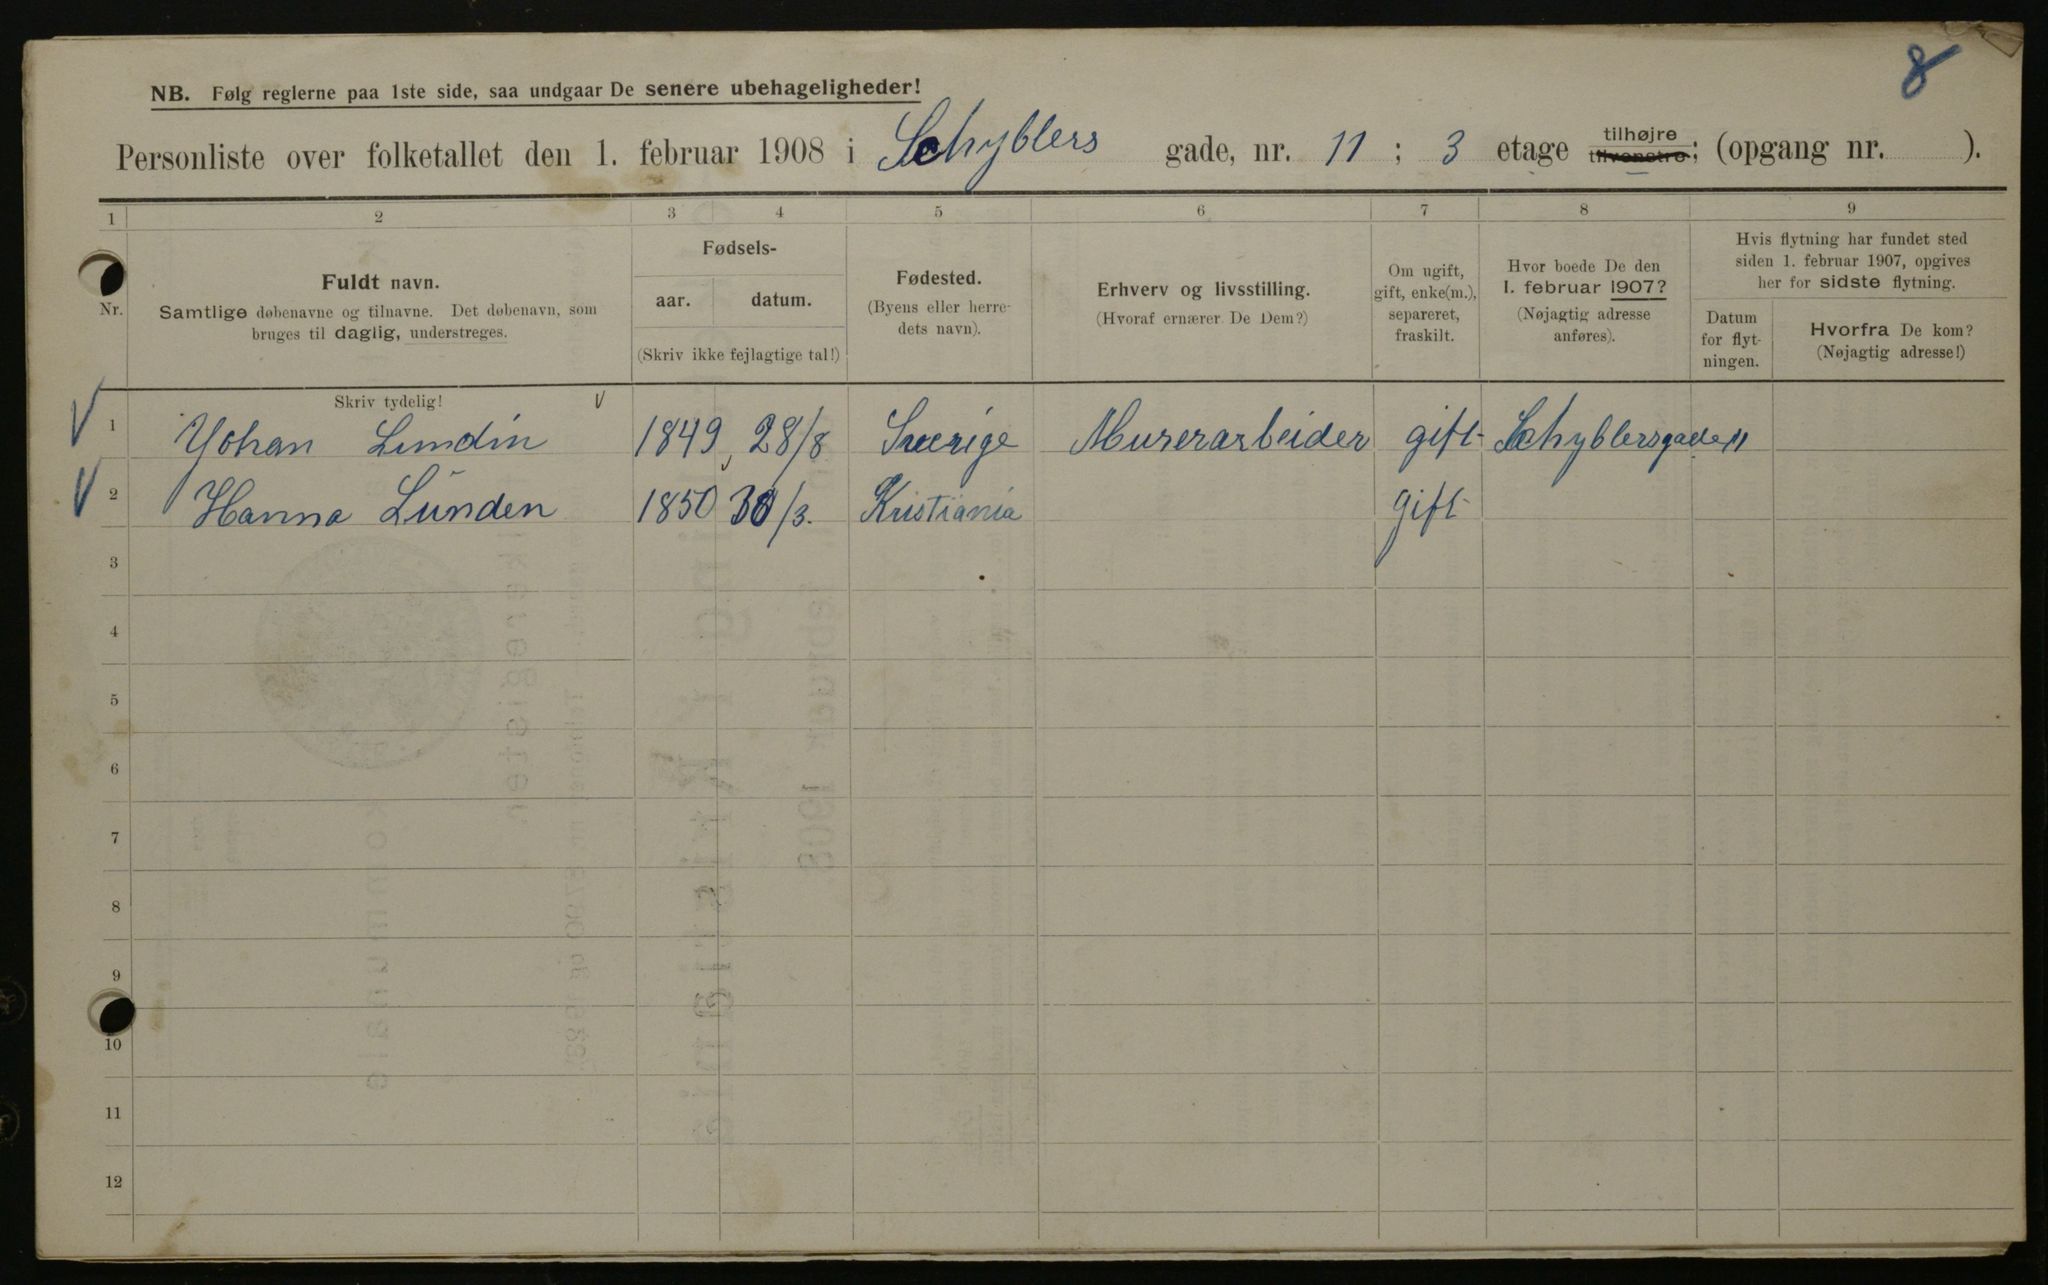 8
NB. Følg reglerne paa 1ste side, saa undgaar De senere ubehageligheder!
Personliste over folketallet den 1. februar 1908 i Schyblers gade, nr. 11 ; 3 etage tilhøjre tilvenstre; (opgang nr. ).
1 2 3 4 5 6 7 8 9
Nr.
Fuldt navn.
Samtlige døbenavne og tilnavne. Det døbenavn, som
bruges til daglig, understreges.
Skriv tydelig!
Fødsels-
aar. datum.
(Skriv ikke fejlagtige tal!)
Fødested.
(Byens eller herre-
dets navn).
Erhverv og livsstilling.
(Hvoraf ernærer De Dem?)
Om ugift,
gift, enke(m.),
separeret,
fraskilt.
Hvor boede De den
1. februar 1907?
(Nøjagtig adresse
anføres).
Hvis flytning har fundet sted
siden 1. februar 1907, opgives
her for sidste flytning.
Datum
for flyt-
ningen.
Hvorfra De kom?
(Nøjagtig adresse!)
1 Johan Lundin 1849, 28/8 Sverige Murerarbeider gift Schyblersgade 11
2 Hanna Lunden 1850 30/3. Kristiania gift
3
4
5
6
7
8
9
10
11
12